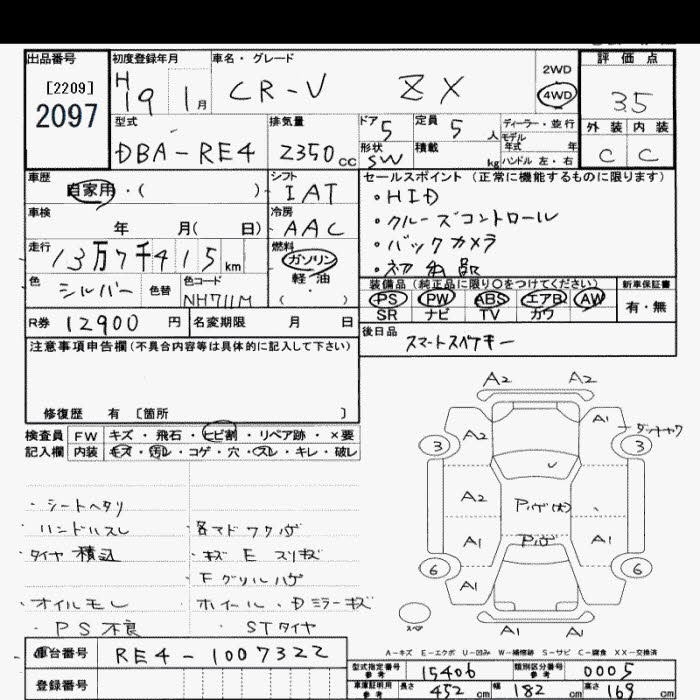 出品番号 初度登録年月 車名・グレード 評価点
[2209] 2097
H19 1月 CR-V ZX 2WD 4WD 3.5
型式 排気量 ドア 5 定員 5人 ディーラー・並行 外装 内装
モデル年式 年
DBA-RE4 2350cc 形状 SW 積載 kg ハンドル 左・右 C C
車歴 シフト セールスポイント (正常に機能するものに限ります)
自家用・( ) IAT
・HID
車検 冷房
年 月( 日) AAC
・クルーズコントロール
走行 燃料
13万7千415km ガソリン
・バックカメラ
軽・油
色 シルバー 色替 色コード NH711M ( )
装備品 (純正品に限り○をつけてください) 新車保証書
PS PW ABS エアB AW 有・無
SR ナビ TV カワ
R券 12900円 名変期限 月 日
後日品 スマートスペアキー
注意事項申告欄(不具合内容等は具体的に記入して下さい)
修復歴 有 〔箇所 〕
検査員 FW キズ・飛石・ヒビ割・リペア跡・×要
記入欄 内装 キズ・汚レ・コゲ・穴・スレ・キレ・破レ
A2 A2
A2 A1
3 3
A2
A1 A1
6 6
A1
A1 A1
スペア
・シートヘタリ
・ハンドルスレ ・各マドワクハゲ
・タイヤ積込 ・キズ E スリキズ
・Fグリルハゲ
・オイルモレ ・ホイール・Dミラーキズ
・PS不良 STタイヤ
A-キズ E-エクボ U-凹み W-補修跡 S-サビ C-腐食 XX-交換済
車台番号 RE4-1007322
型式指定番号 参考 15406 類別区分番号 参考 0005
登録番号
車庫証明用 参考 長さ 452cm 幅 182cm 高さ 169cm